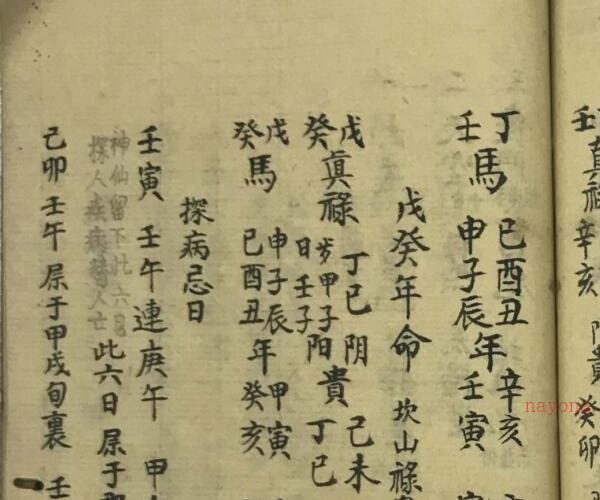 壬 真祿 辛亥 陰貴 癸卯
丁壬馬 巳酉丑申子辰年 辛亥壬寅
戊癸年命 坎山祿
戊癸真祿 丁巳 陰 己未
日壬子 歲甲子 陽貴 丁巳
戊癸馬 申子辰巳酉丑年 甲寅癸亥
探病忌日
壬寅 壬午連庚午 甲
神仙留下此六日
探人疾病替人亡
此六日 屎于
己卯 壬午 屎于甲戌旬裏 壬
nayona